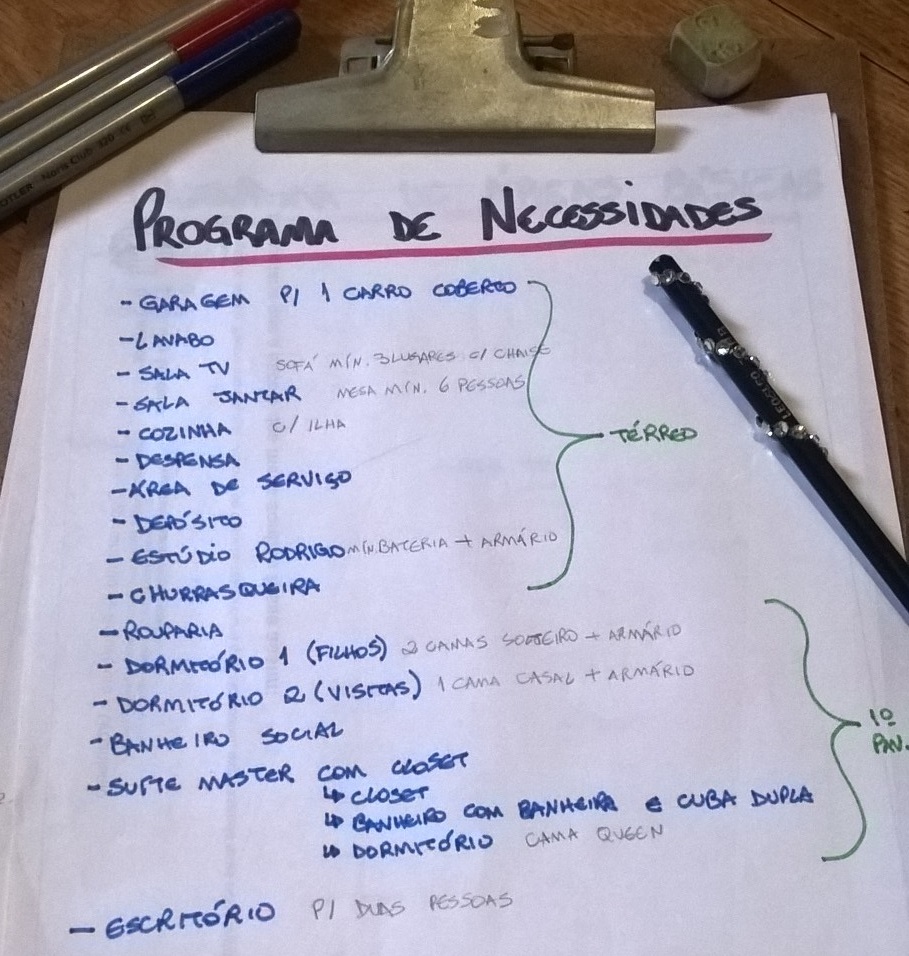 PROGRAMA DE NECESSIDADES
- GARAGEM P/ 1 CARRO COBERTO
- LAVABO
- SALA TV SOFÁ MÍN. 3 LUGARES C/ CHAISE
- SALA JANTAR MESA MÍN. 6 PESSOAS
- COZINHA C/ ILHA
- DESPENSA
- ÁREA DE SERVIÇO
- DEPÓSITO
- ESTÚDIO RODRIGO MÍN. BATERIA + ARMÁRIO
- CHURRASQUEIRA
TÉRREO
- ROUPARIA
- DORMITÓRIO 1 (FILHOS) 2 CAMAS SOLTEIRO + ARMÁRIO
- DORMITÓRIO 2 (VISITAS) 1 CAMA CASAL + ARMÁRIO
- BANHEIRO SOCIAL
- SUÍTE MASTER COM CLOSET
↳ CLOSET
↳ BANHEIRO COM BANHEIRA E CUBA DUPLA
↳ DORMITÓRIO CAMA QUEEN
1º
PAV.
- ESCRITÓRIO P/ DUAS PESSOAS
Noris Club 320